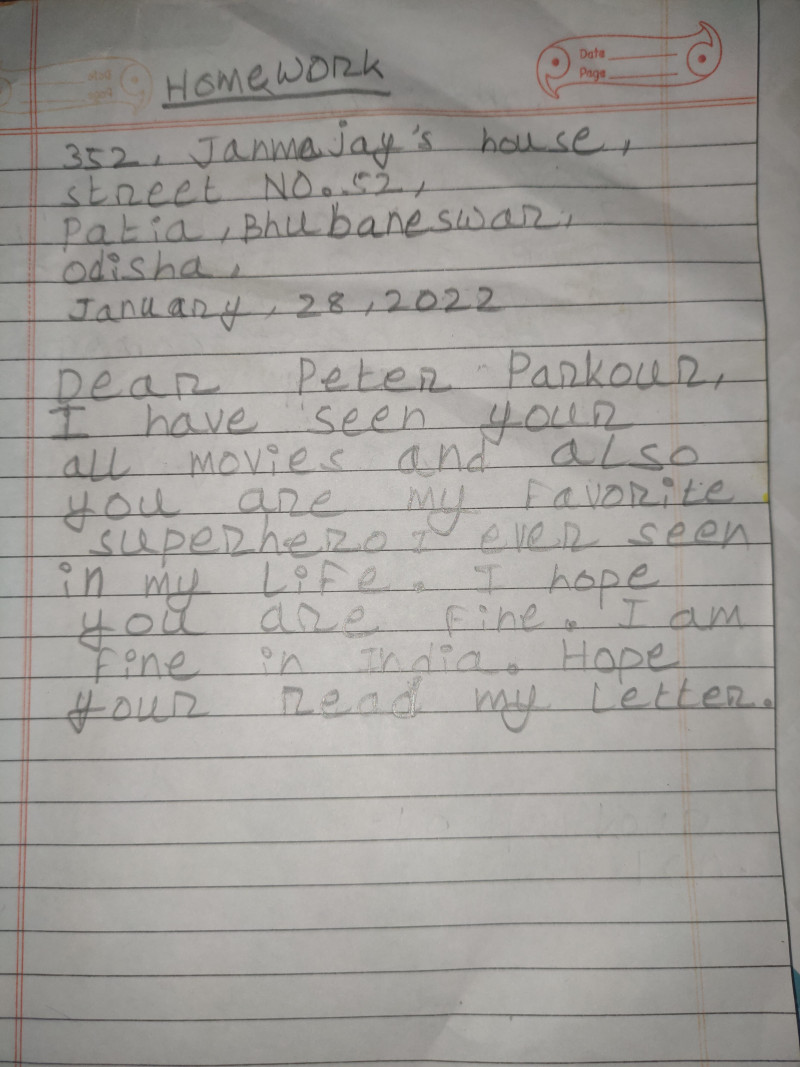 HOMEWORK
Date
Page
352, Janmajay's house,
street NO. 52,
Patia, Bhubaneswar,
Odisha,
January, 28, 2022
Dear Peter Parkour,
I have seen your
all movies and also
you are my favorite
superhero I ever seen
in my Life. I hope
you are fine. I am
fine in India. Hope
your read my Letter.